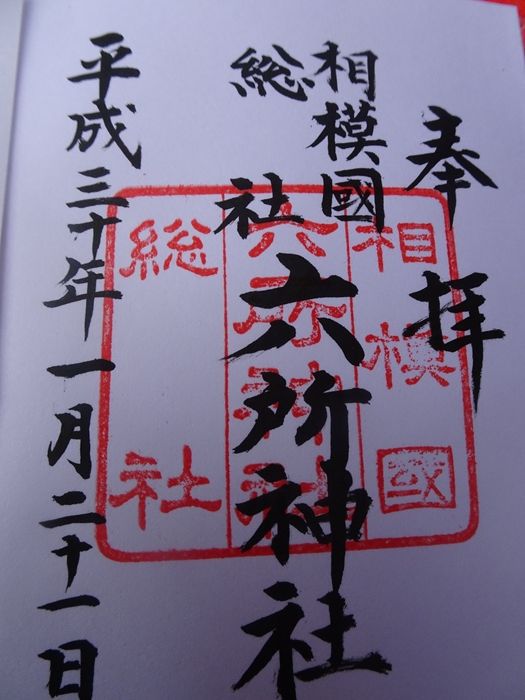 奉拝
相模國
総社
六所神社
平成三十年一月二十一日
相模国
六所神社
総社